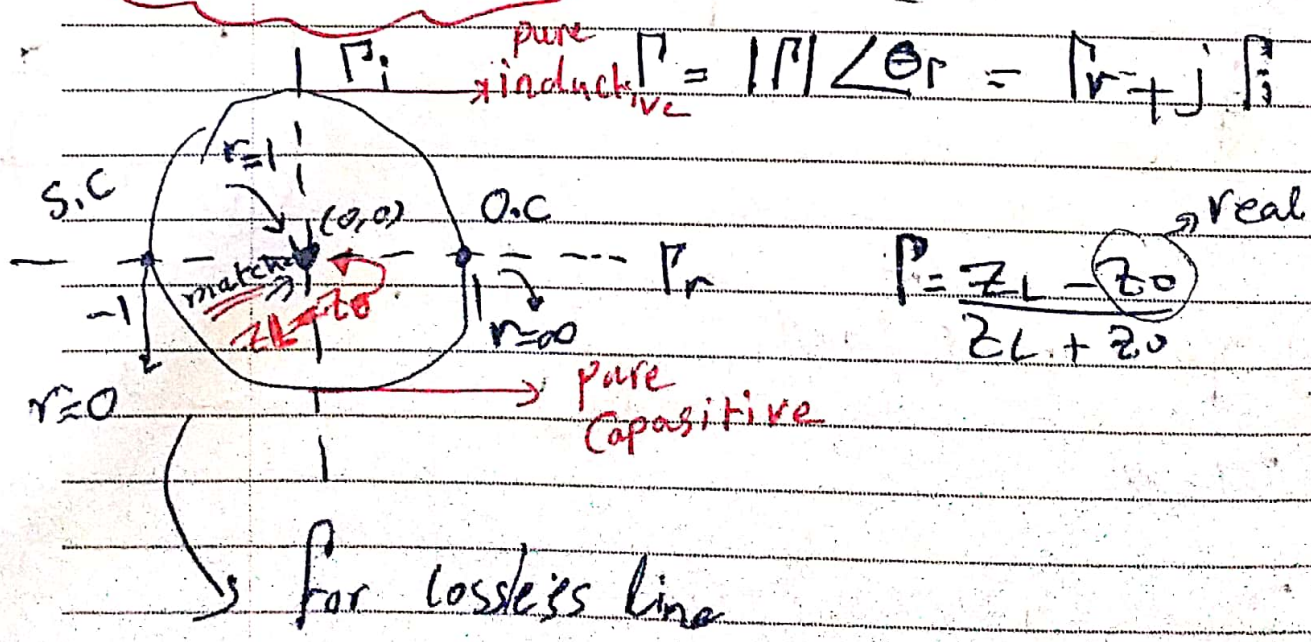 Γi
pure inductive
Γ = |Γ| ∠θΓ = Γr + j Γi
r=1
S.C
(0,0)
O.C
real
matched
ZL = Z0
Γr
Γ = ZL - Z0
ZL + Z0
-1
1
r=∞
r=0
pure
Capasitive
for lossless line